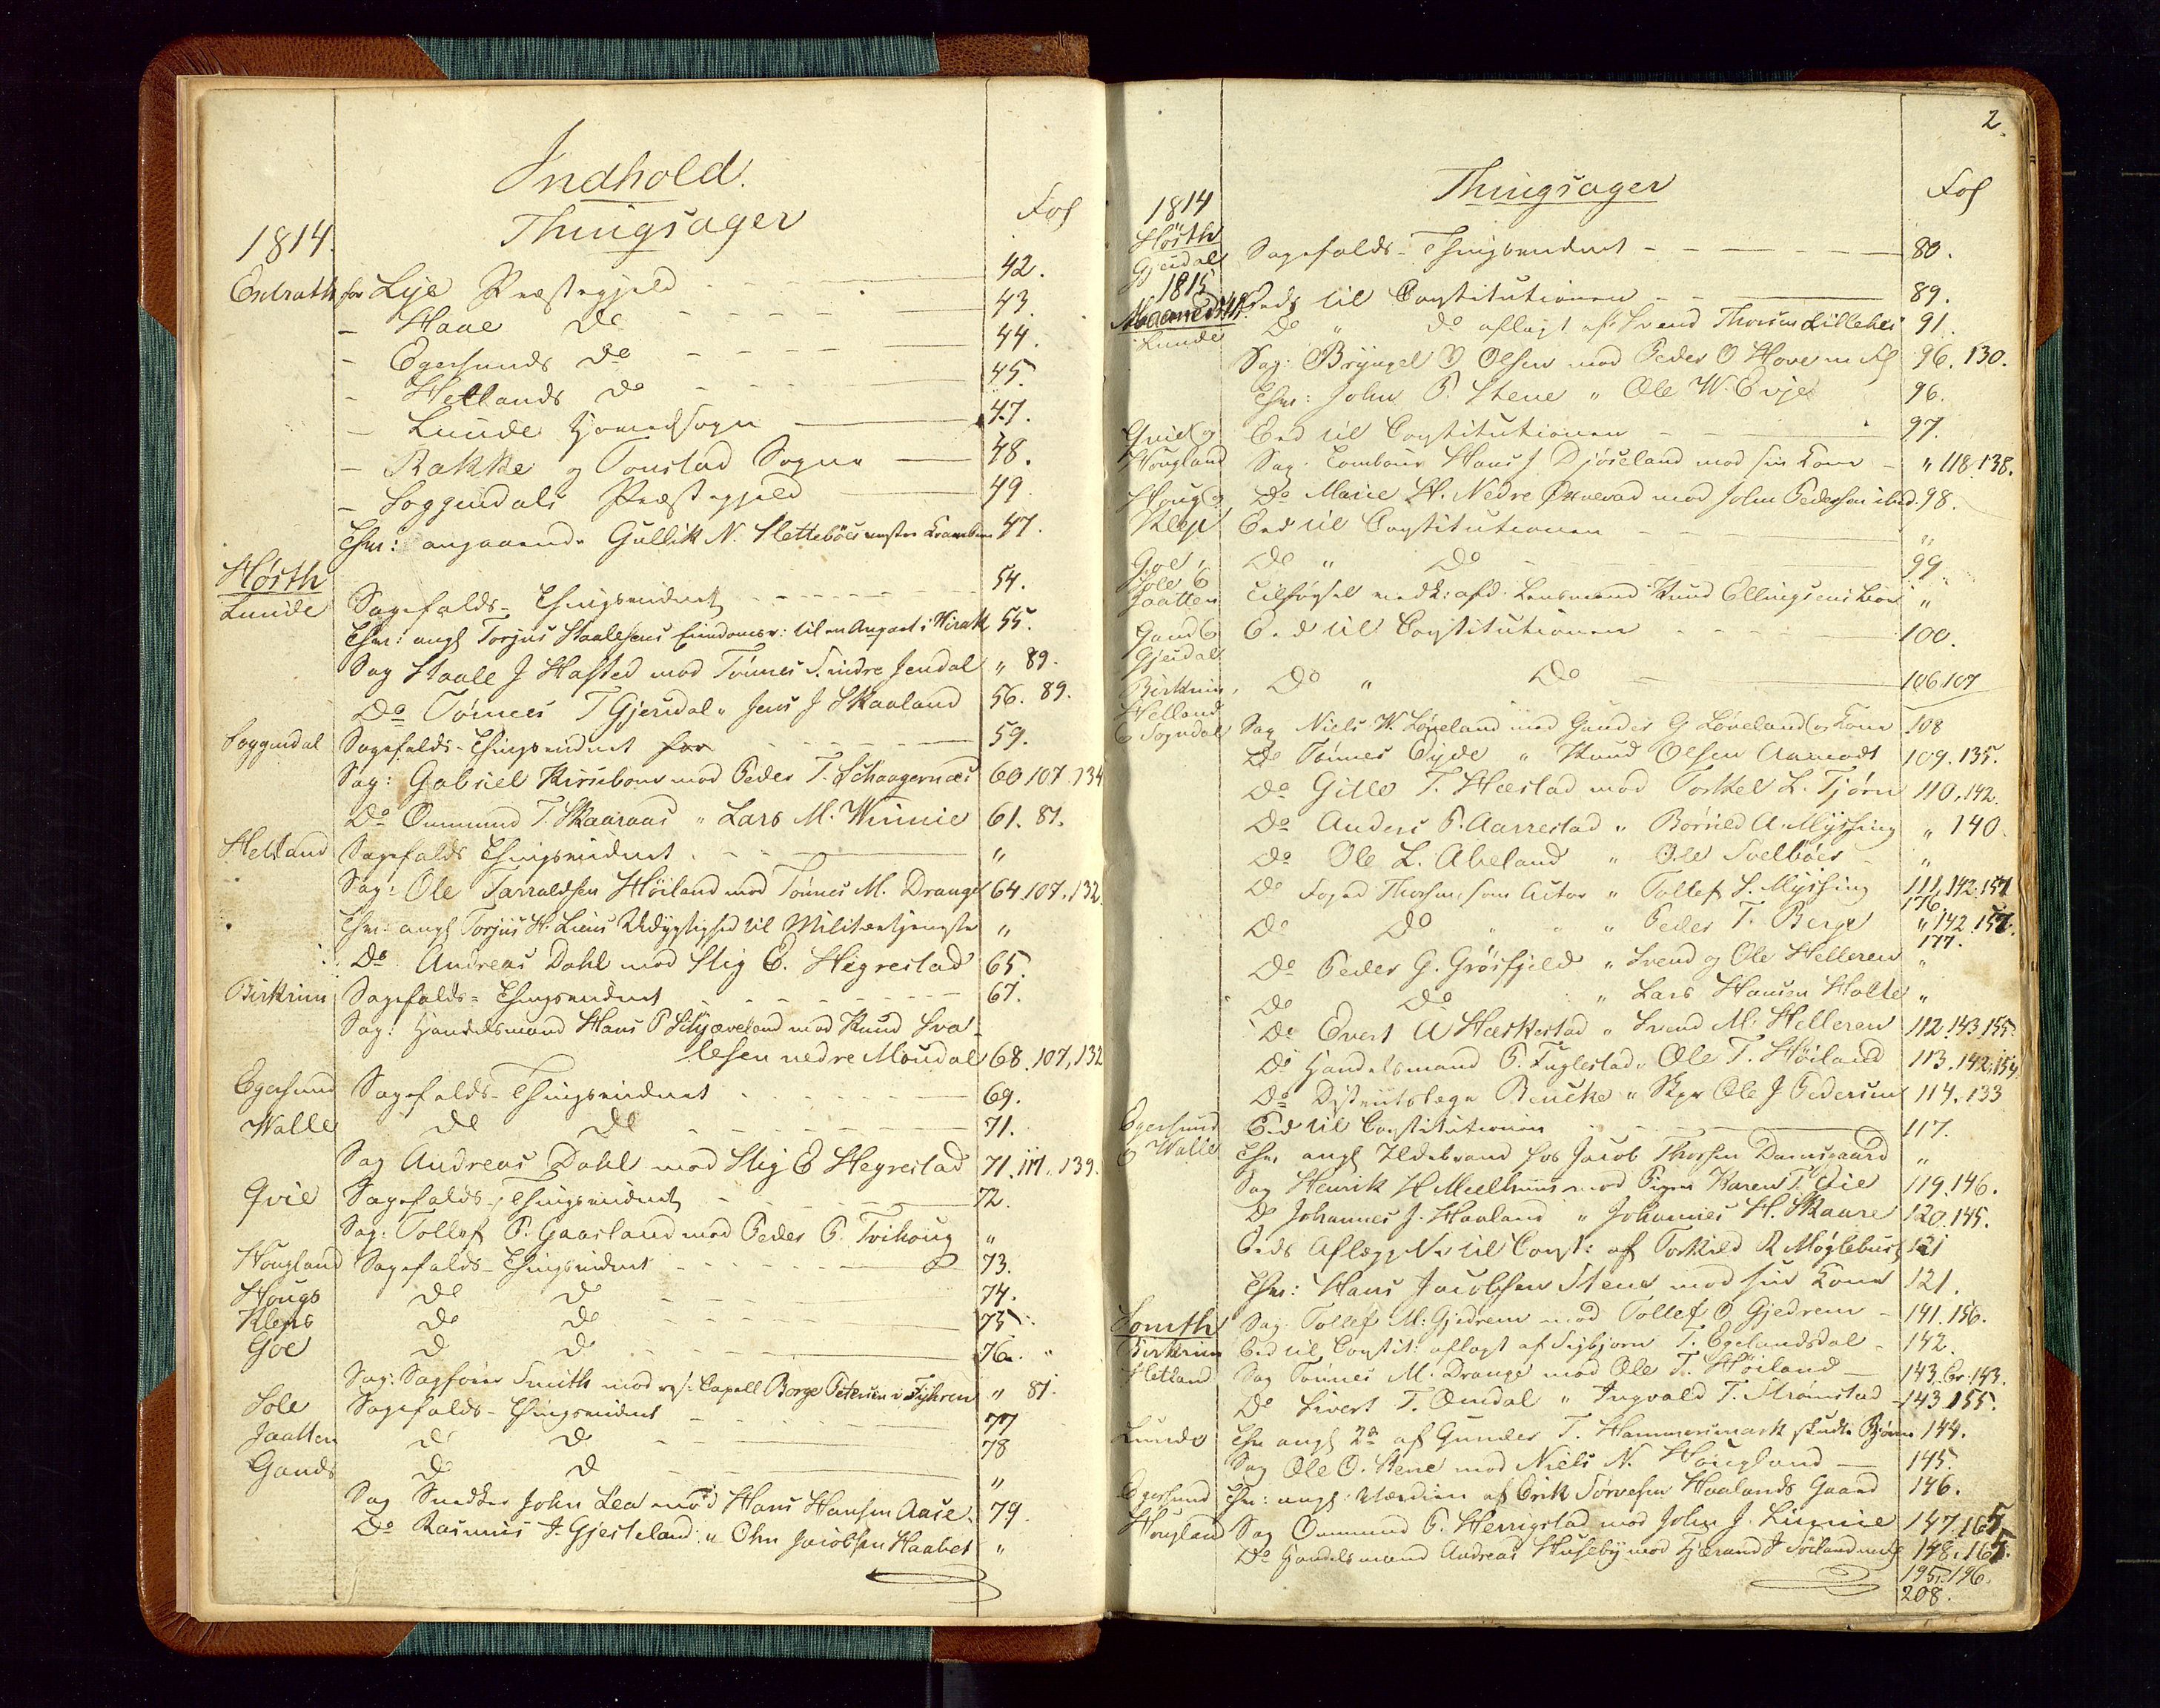 Indhold.
Thingsager
Fol
1814.
Extrath for Lye Præstegjeld 42.
– Haae Do 43.
– Egersunds Do 44.
– Hetlands Do 45.
– Lunde Hovedsogn 47.
– Rakke og Tonstad Sogne 48.
– Soggendals Præstegjeld 49
Thv: angaaende Gullik N. Slettebøes 47.
Høsth
Lunde Sagefalds-Thingsvidnet 54.
Thv: angl Torjus Staalesens til en Anpart i Virak 55.
Sag Staale J Hafsted mod Tønnes Sindre Jendal " 89.
Do Tønnes T Gjersdal " Jens J Skaaland 56. 89.
Soggendal Sagefalds-Thingsvidnet for 59.
Sag: Gabriel Kirsebom mod Peder T. Schaagernæs 60 107. 134
Do Ommund T. Skaaraas " Lars M. Winnie 61. 81.
Hetland Sagefalds Thingsvidnet "
Sag: Ole Tarraldsen Høiland mod Tønnes M. Drange 64 107. 132.
Thv: angl Torjus H. Liens Udygtighed til Militærtjeneste "
Do Andreas Dahl mod Stig E. Hegrestad 65.
Birkrim Sagefalds-Thingsvidnet 67.
Sag: Handelsmand Hans P Skjæveland mod Knud Sva-
lesen nedre Moudal 68. 107, 132
Egersund Sagefalds-Thingsvidnet 69.
Walle Do Do 71.
Sag Andreas Dahl mod Stig E Hegrestad 71. 117. 139.
Qvie Sagefalds-Thingsvidnet 72.
Sag: Tollef P. Gaasland mod Peder P. Tvihoug "
Hougland Sagefalds-Thingsvidnet 73.
Hougs Do Do 74.
Kleps Do Do 75
Goe D D 76.
Sag: Sagfører Smith mod Capell Borge Petersen i Fyhren " 81.
Sole Sagefalds-Thingsvidnet 77
Jaatten D D 78
Gands D D "
Sag Snedker John Lea mod Hans Hansen Aase 79.
Do Rasmus J. Gjesteland " Ohn Jacobsen Haabet "
2.
Thingsager
Fol
1814
Høsth
Gjesdal Sagefalds-Thingsvidnet 80.
1815
Maanedsth. Eeds til Constitutionen 89.
Lunde Do " Do aflagt af Svend Thorsen Lillehei 91.
Sag: Bryngel O Olsen mod Peder O Hove m fl 96. 130.
Thv: John P. Stene " Ole W. Evje 96.
Qvie og Eed til Constitutionen 97.
Hougland Sag: Tambour Hans J Djøseland mod sin Kone " 118. 138.
Houg og Do Marie H. Nedre Øxnevad mod John Pedersen ibid. 98.
Klep Eed til Constitutionen "
Goe, Do " Do 99
Sole &
Jaatten Tilførsel medk: afd: Lensmand Knud Ellingsens "
Gand & Eed til Constitutionen 100.
Gjesdal
Birkrim, Do " Do 106 107
Helland
& Sogndal Sag Niels W. Løveland mod Gunder G Løveland og Kone 108
Do Tønnes Eyde " Knud Olsen Aamodt 109. 135.
Do Gitle T. Hæstad mod Torkel L. Tjørn 110, 142.
Do Anders P. Aarrestad " Børild A. Myssing " 140
Do Ole L. Aheland " Ole Svelbøes "
Do Foged Thorsen, som Actor " Tollef S. Myssing 111, 142. 157
176.
Do Do " " " Peder T. Berge " 142. 157.
177.
Do Peder G. Grøsfjeld " Svend og Ole Helleren "
Do Do " Lars Hansen Holte "
Do Evert A Hæskestad " Svend M. Helleren 112. 143. 155.
Do Handelsmand P. Fuglestad " Ole T. Høiland 113. 142. 154
Do Districtslæge Beucke " Skpr Ole J Pedersen 114. 133
Egersund Eed til Constitutionen 117.
& Walle Thv angl Ildebrand hos Jacob Thorsen Damsgaard "
Sag Henrik H Mellhuus mod Pigen Karen T. Eie 119. 146.
Do Johannes J. Haaland " Johannes H. Skaare 120. 145.
Eeds Aflæggelse til Const: af Torkild R Møglebust 121
Thv: Hans Jacobsen Stene mod sin Kone 121.
Somth Sag Tollef M: Gjedrem mod Tollef O Gjedrem 141. 156.
Birkrim Eed til Constit: aflagt af Sigbjørn T. Egelandsdal 142.
Hetland Sag Tønnes M. Drange mod Ole T. Høiland 143. 143.
Do Sivert T. Omdal " Ingvald T. Strømstad 143 155.
Lunde Thv angl 2de af Gunder T. Hammersmark skudte Bjørne 144.
Sag Ole O. Stene mod Niels N. Hougland 145.
Egersund Thv: angl: Værdien af Erik Sørvesen Haalands Gaard 146.
Hougland Sag Ommund P. Herrigstad mod John J. Lunne 147. 165
Do Handelsmand Andreas Huseby mod Tjerand J Søiland 148. 165.
195. 196.
208.